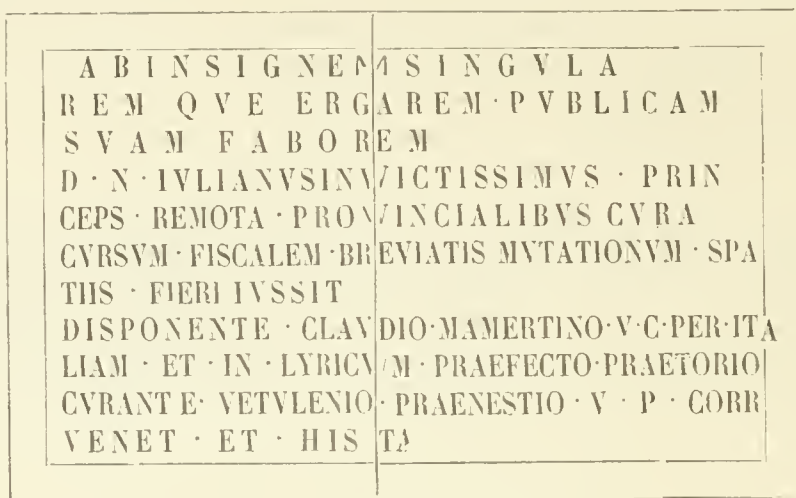 ABINSIGNEMSINGVLA
REMQVE ERGAREM·PVBLICAM
SVAM FABOREM
D·N·IVLIANVSINVICTISSIMVS·PRIN
CEPS·REMOTA·PROVINCIALIBVS CVRA
CVRSVM·FISCALEM·BREVIATIS MVTATIONVM·SPA
TIIS·FIERI IVSSIT
DISPONENTE·CLAVDIO·MAMERTINO·V·C·PER·ITA
LIAM·ET·IN·LYRICVM·PRAEFECTO·PRAETORIO
CVRANTE·VETVLENIO·PRAENESTIO·V·P·CORR
VENET·ET·HISTA